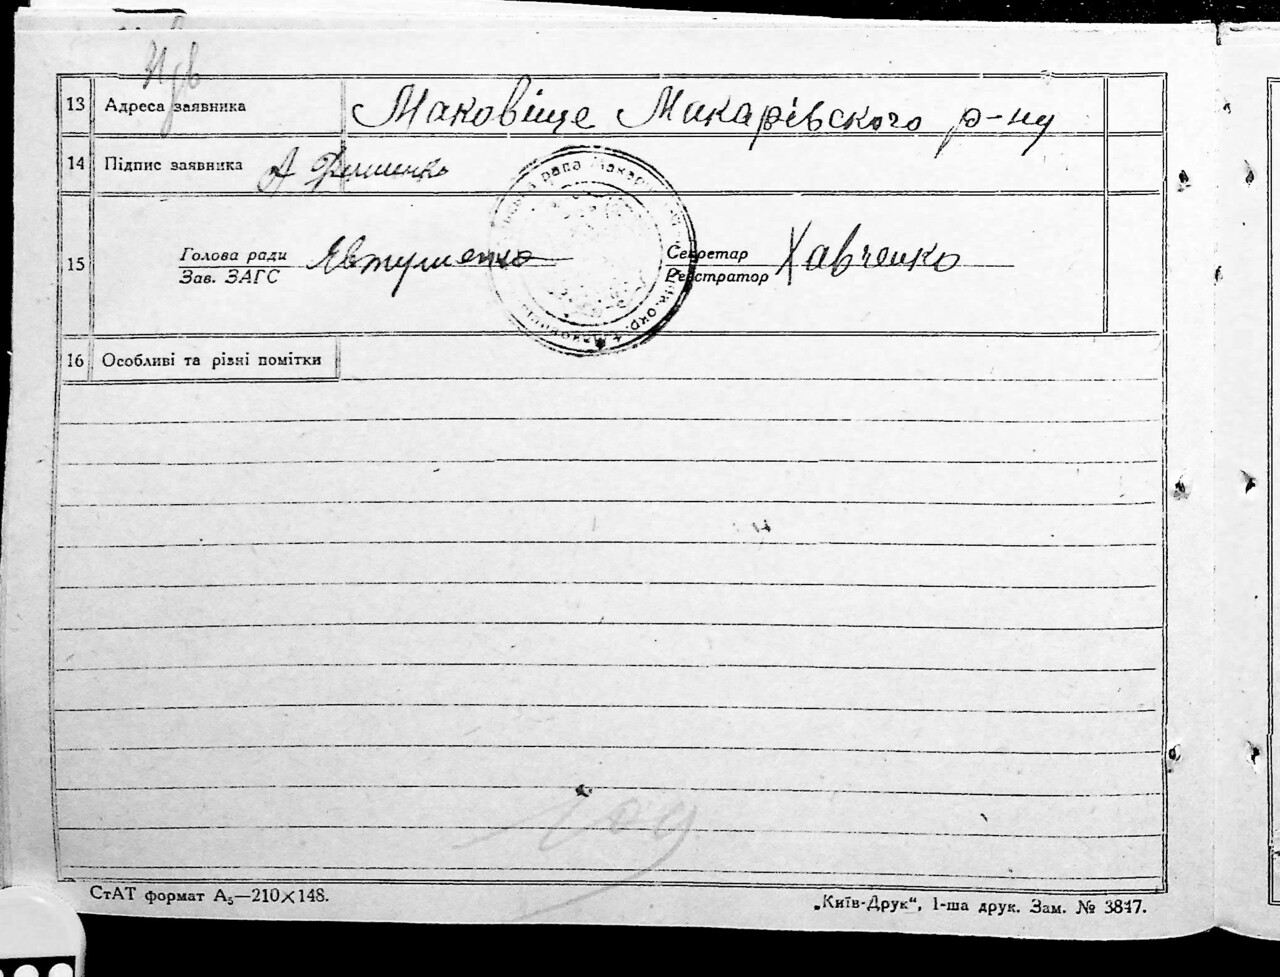 13 Адреса заявника Маковіще Макарівского р-ну
14 Підпис заявника А
15 Голова ради Євтушенко Секретар Хавченко
Зав. ЗАГС Реєстратор
рада Макар
окр.
16 Особливі та різні помітки
СтАТ формат А₅—210×148.
„Київ-Друк“, 1-ша друк. Зам. № 3847.